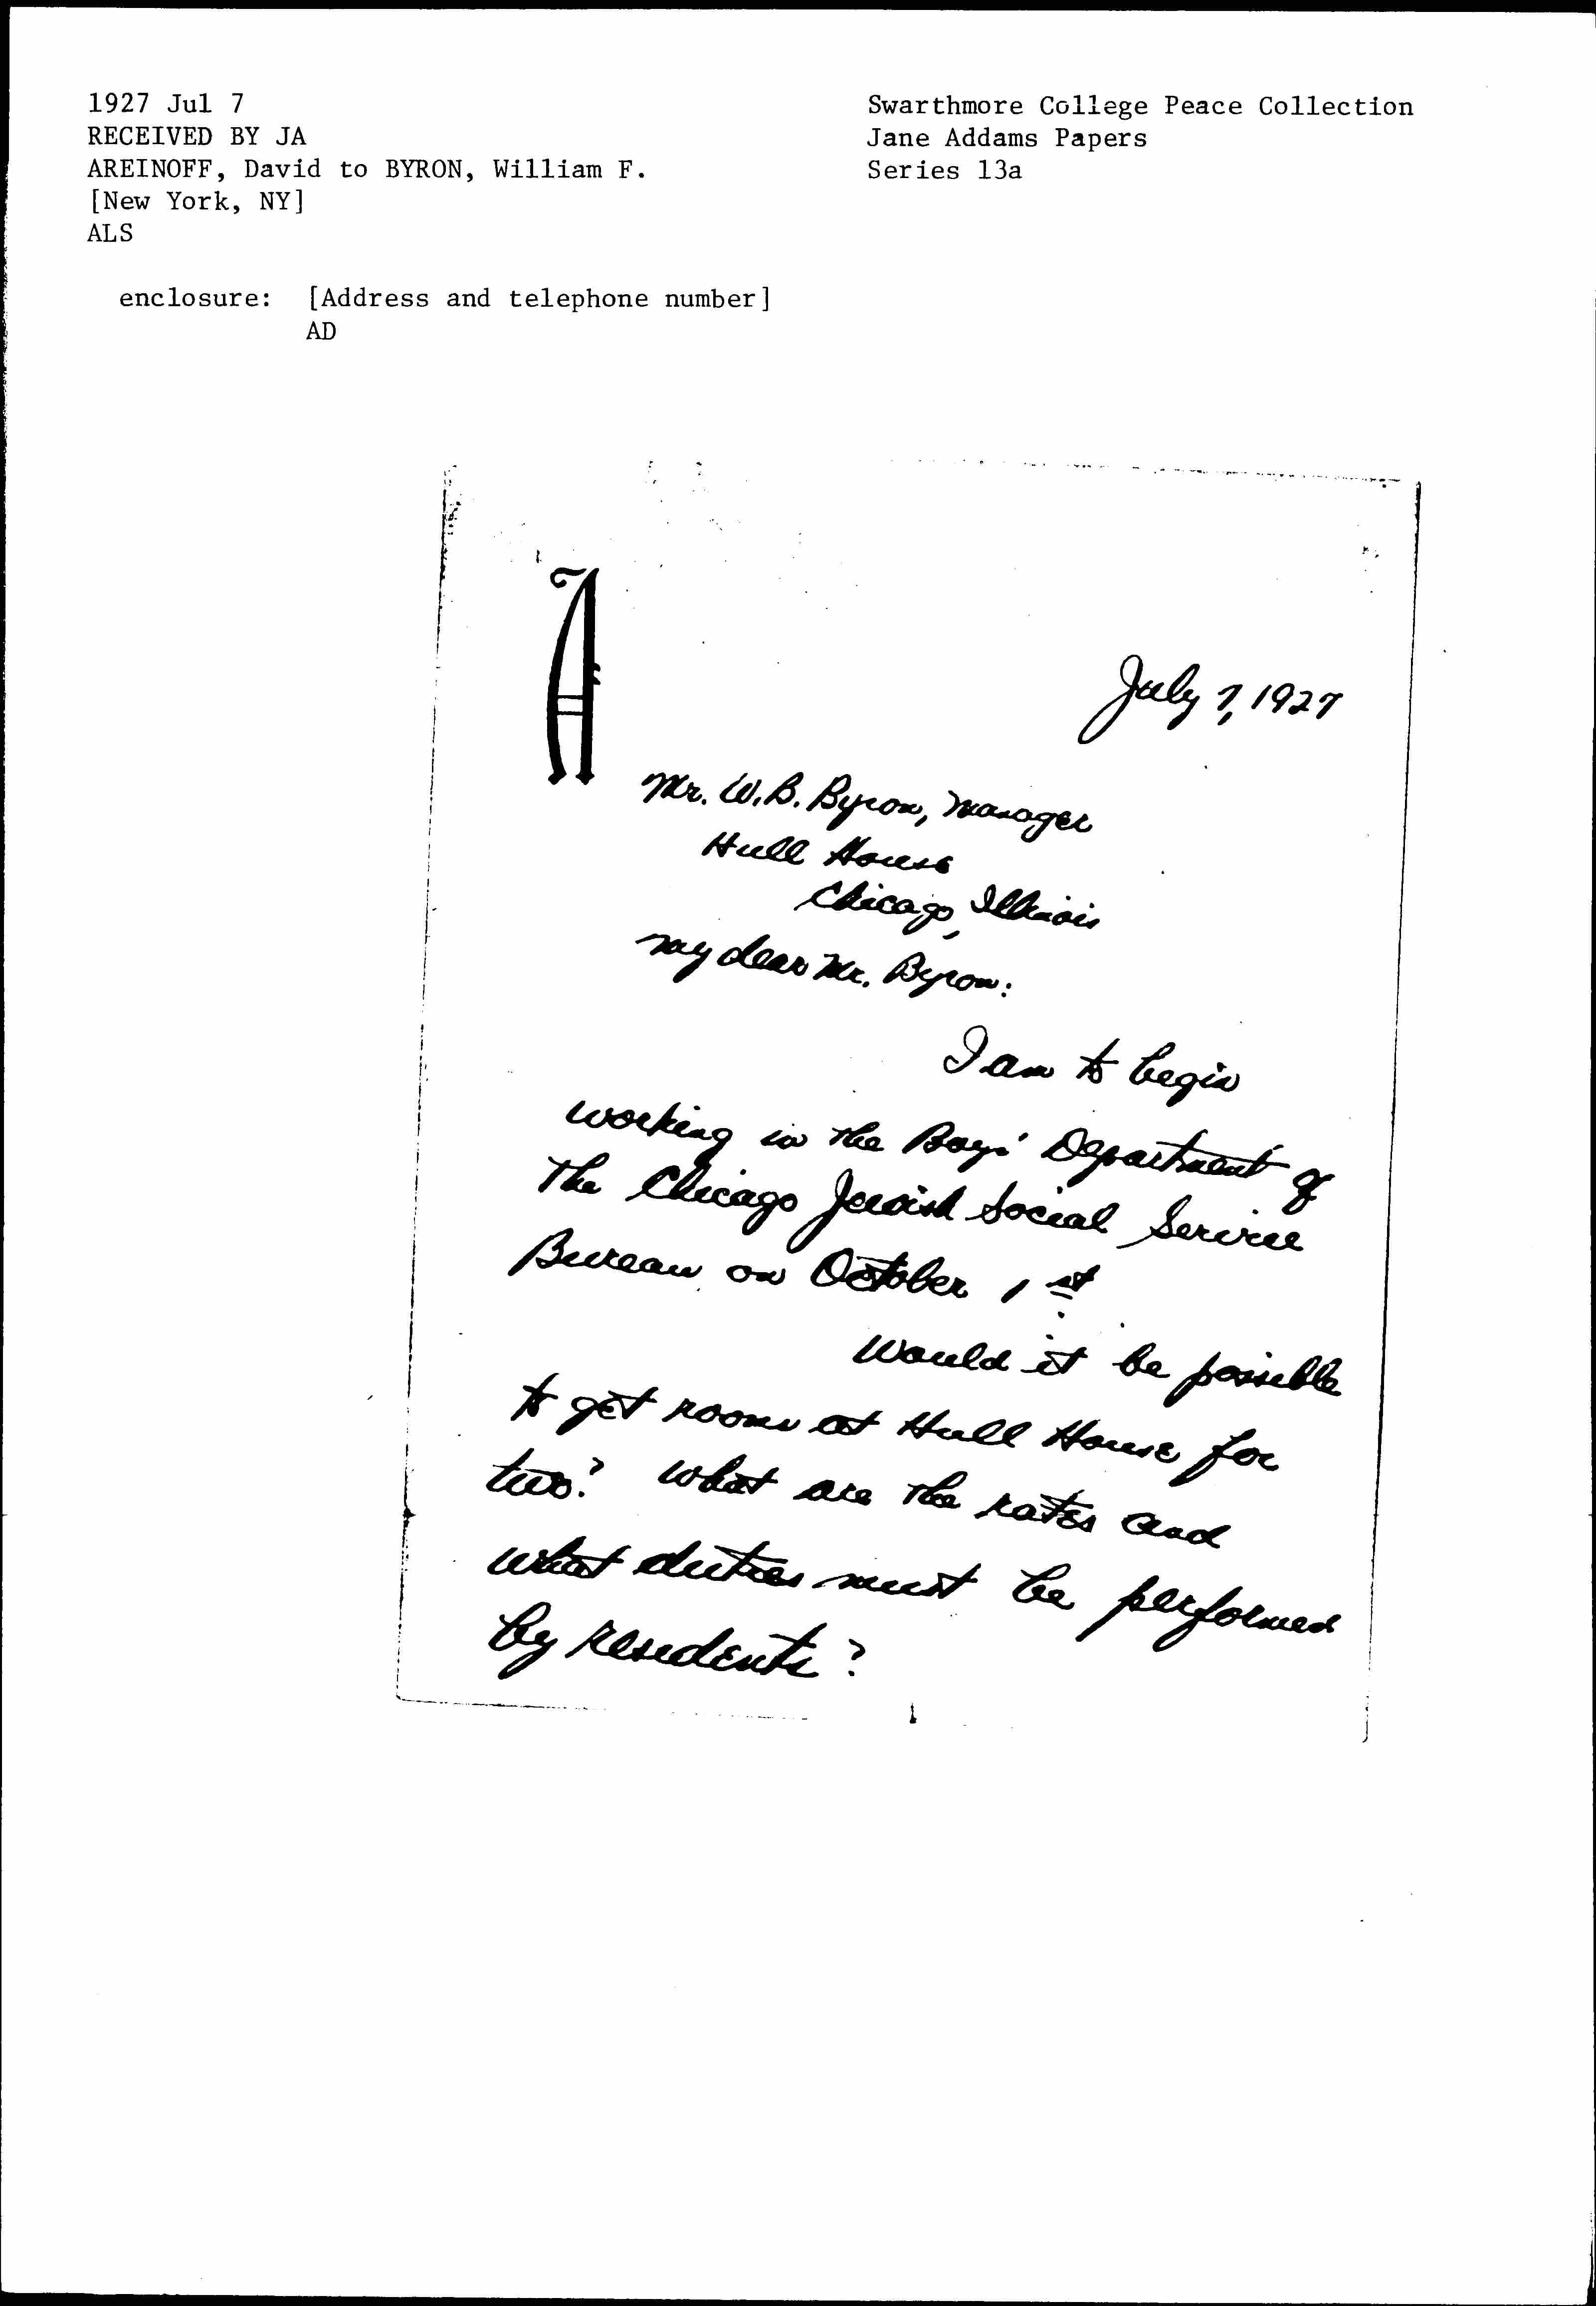 1927 Jul 7
RECEIVED BY JA
AREINOFF, David to BYRON, William F.
[New York, NY]
ALS
enclosure: [Address and telephone number]
AD
Swarthmore College Peace Collection
Jane Addams Papers
Series 13a
A
July 7, 1927
Mr. W.B. Byron, Manager
Hull House
Chicago, Illinois
My dear Mr. Byron:
I am to begin
working in the Boys' Department of
The Chicago Jewish Social Service
Bureau on October 1st.
Would it be possible
to get rooms at Hull House for
two? What are the rates and
what duties must be performed
by residents?